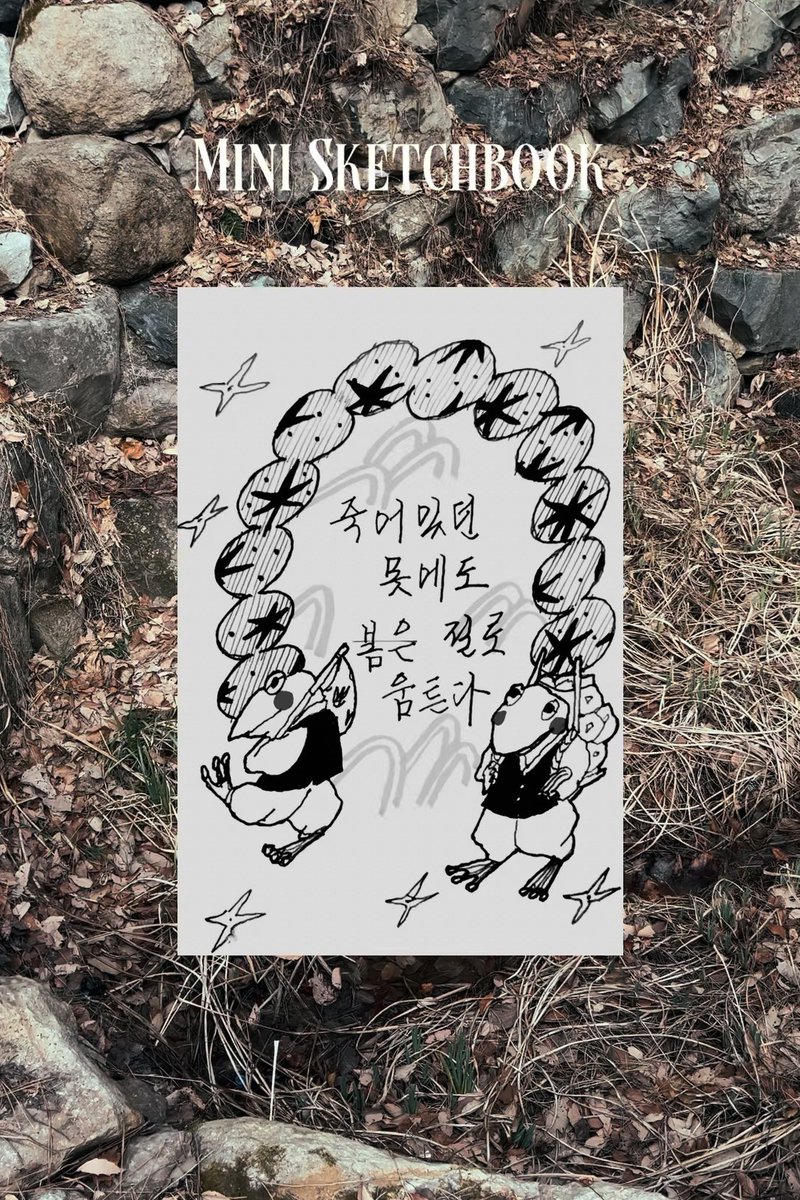 MINI SKETCHBOOK
죽어있던
못에도
봄은 절로
움트다